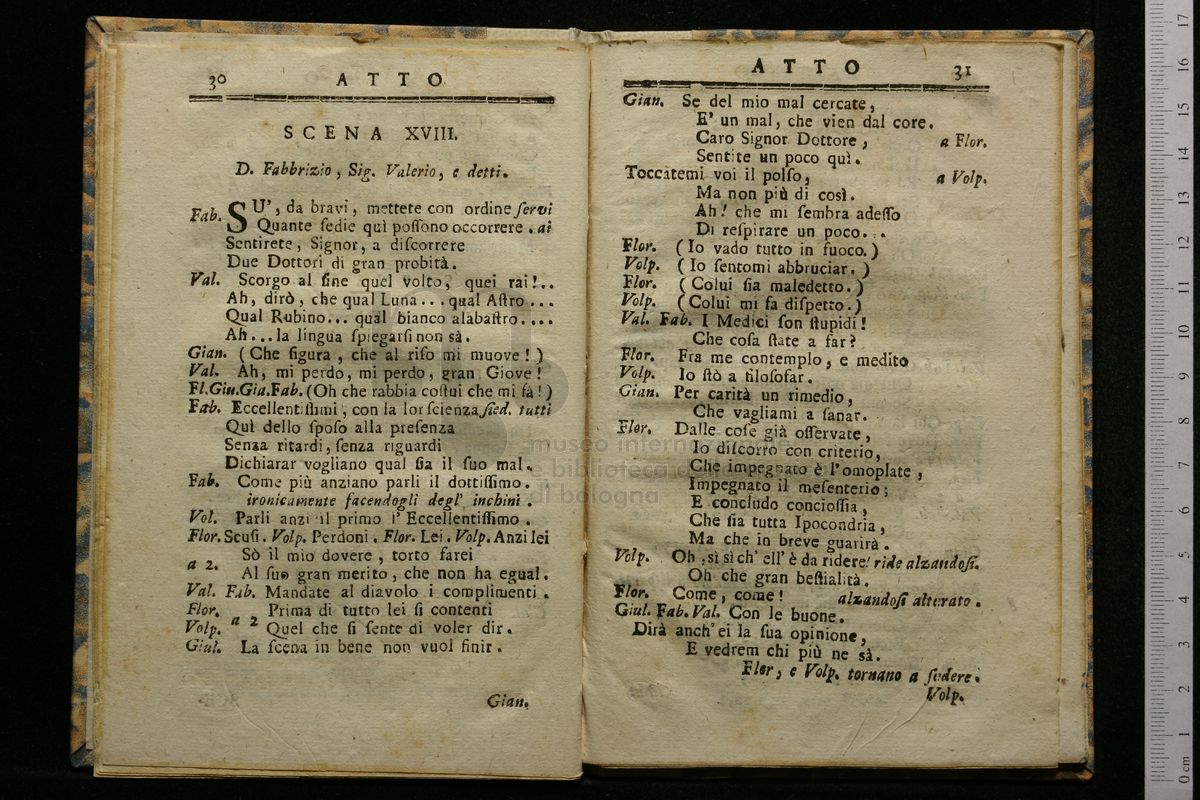 30 ATTO
SCENA XVIII.
D. Fabbrizio, Sig. Valerio, e detti.
Fab. SU', da bravi, mettete con ordine ſervi
Quante ſedie quì poſſono occorrere. ai
Sentirete, Signor, a diſcorrere
Due Dottori di gran probità.
Val. Scorgo al fine quel volto, quei rai!..
Ah, dirò, che qual Luna... qual Aſtro...
Qual Rubino... qual bianco alabaſtro....
Ah...la lingua ſpiegarſi non sà.
Gian. (Che figura, che al riſo mi muove!)
Val. Ah, mi perdo, mi perdo, gran Giove!
Fl.Giu.Gia.Fab. (Oh che rabbia coſtui che mi fà!)
Fab. Eccellentiſſimi, con la lor ſcienza ſied. tutti
Quì dello ſpoſo alla preſenza
Senza ritardi, ſenza riguardi
Dichiarar vogliano qual ſia il ſuo mal.
Fab. Come più anziano parli il dottiſſimo.
ironicamente facendogli degl' inchini.
Vol. Parli anzi il primo l'Eccellentiſſimo.
Flor. Scuſi. Volp. Perdoni. Flor. Lei. Volp. Anzi lei
a 2. Sò il mio dovere, torto farei
Al ſuo gran merito, che non ha egual.
Val. Fab. Mandate al diavolo i complimenti.
Flor. Prima di tutto lei ſi contenti
Volp. a 2 Quel che ſi ſente di voler dir.
Giul. La ſcena in bene non vuol finir.
Gian.
ATTO 31
Gian. Se del mio mal cercate,
E' un mal, che vien dal core.
Caro Signor Dottore, a Flor.
Sentite un poco quì.
Toccatemi voi il polſo, a Volp.
Ma non più di così.
Ah! che mi ſembra adeſſo
Di reſpirare un poco...
Flor. (Io vado tutto in fuoco.)
Volp. (Io ſentomi abbruciar.)
Flor. (Colui ſia maledetto.)
Volp. (Colui mi fa diſpetto.)
Val. Fab. I Medici ſon ſtupidi!
Che coſa ſtate a far?
Flor. Fra me contemplo, e medito
Volp. Io ſtò a filoſofar.
Gian. Per carità un rimedio,
Che vagliami a ſanar.
Flor. Dalle coſe già oſſervate,
Io diſcorro con criterio,
Che impegnato è l'omoplate,
Impegnato il meſenterio;
E concludo concioſſia,
Che ſia tutta Ipocondria,
Ma che in breve guarirà.
Volp. Oh, sì sì ch' ell' è da ridere! ride alzandoſi.
Oh che gran beſtialità.
Flor. Come, come! alzandoſi alterato.
Giul. Fab. Val. Con le buone.
Dirà anch'ei la ſua opinione,
E vedrem chi più ne sà.
Flor, e Volp. tornano a ſedere.
Volp.
museo internazionale
e biblioteca
di bologna
0 cm 1 2 3 4 5 6 7 8 9 10 11 12 13 14 15 16 17